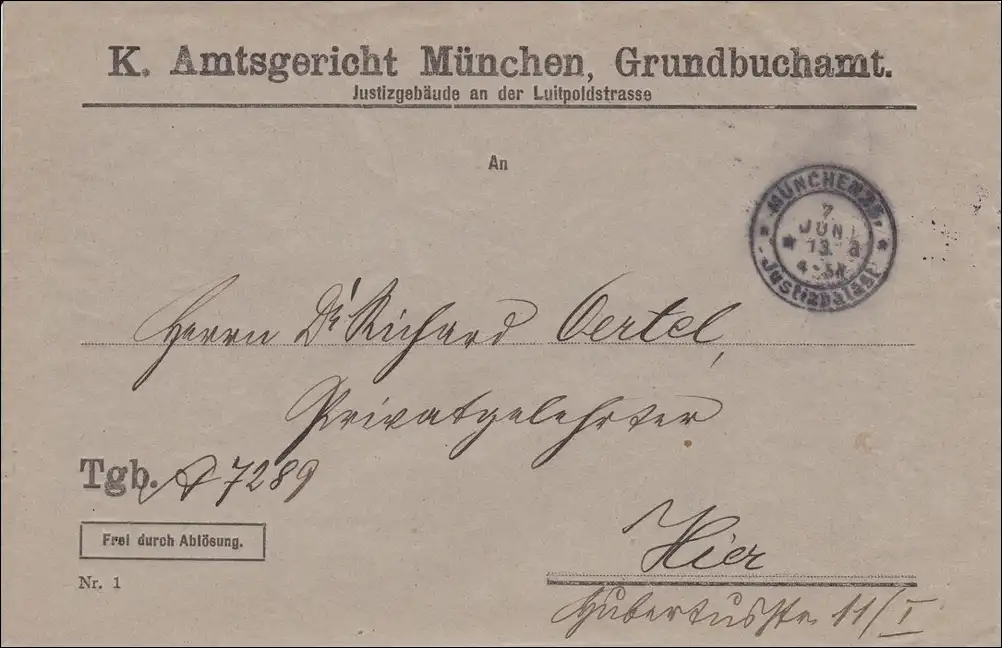 K. Amtsgericht München, Grundbuchamt.
Justizgebäude an der Luitpoldstrasse
An
MÜNCHEN
7
JUNI
13
Justizpalast
Herrn Dr Richard Oertel,
Privatgelehrter
Tgb. 7289
Frei durch Ablösung.
Nr. 1
Hier
Hubertusstr. 11/I